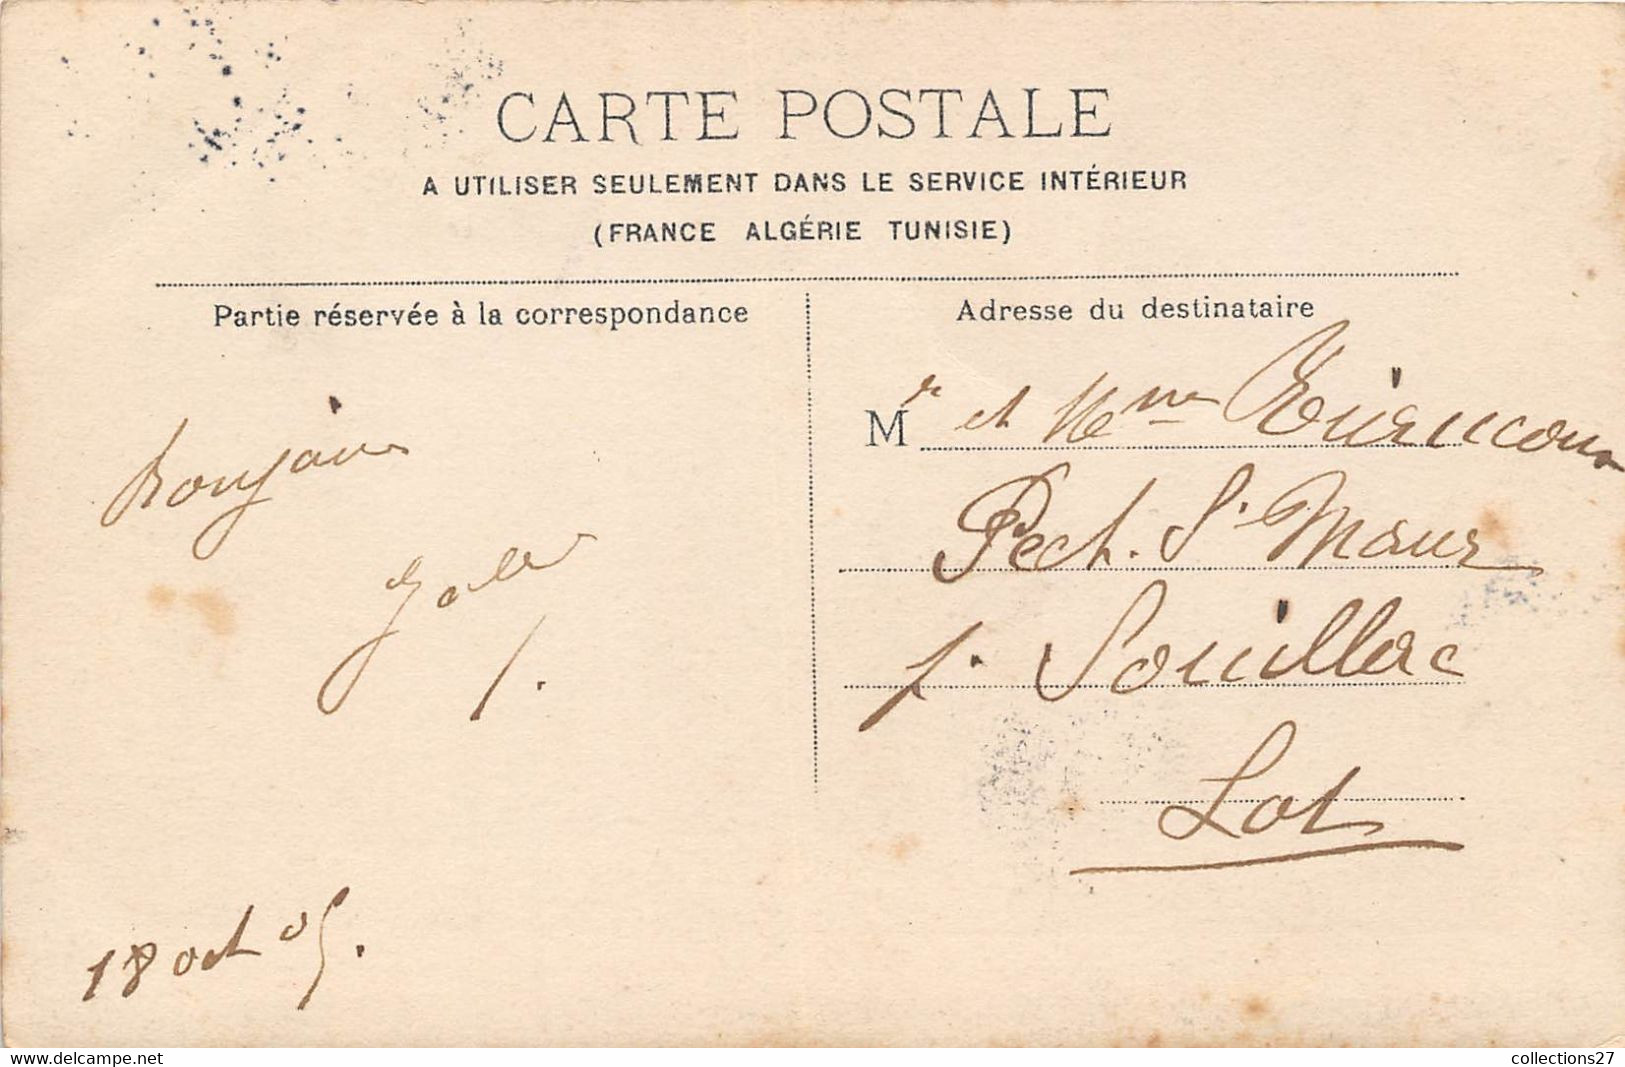 CARTE POSTALE
A UTILISER SEULEMENT DANS LE SERVICE INTÉRIEUR
(FRANCE ALGÉRIE TUNISIE)
Partie réservée à la correspondance
Adresse du destinataire
Mr et Mme
Pech. St Maur
p. Souillac
Lot
18 oct 05.
www.delcampe.net
collections27